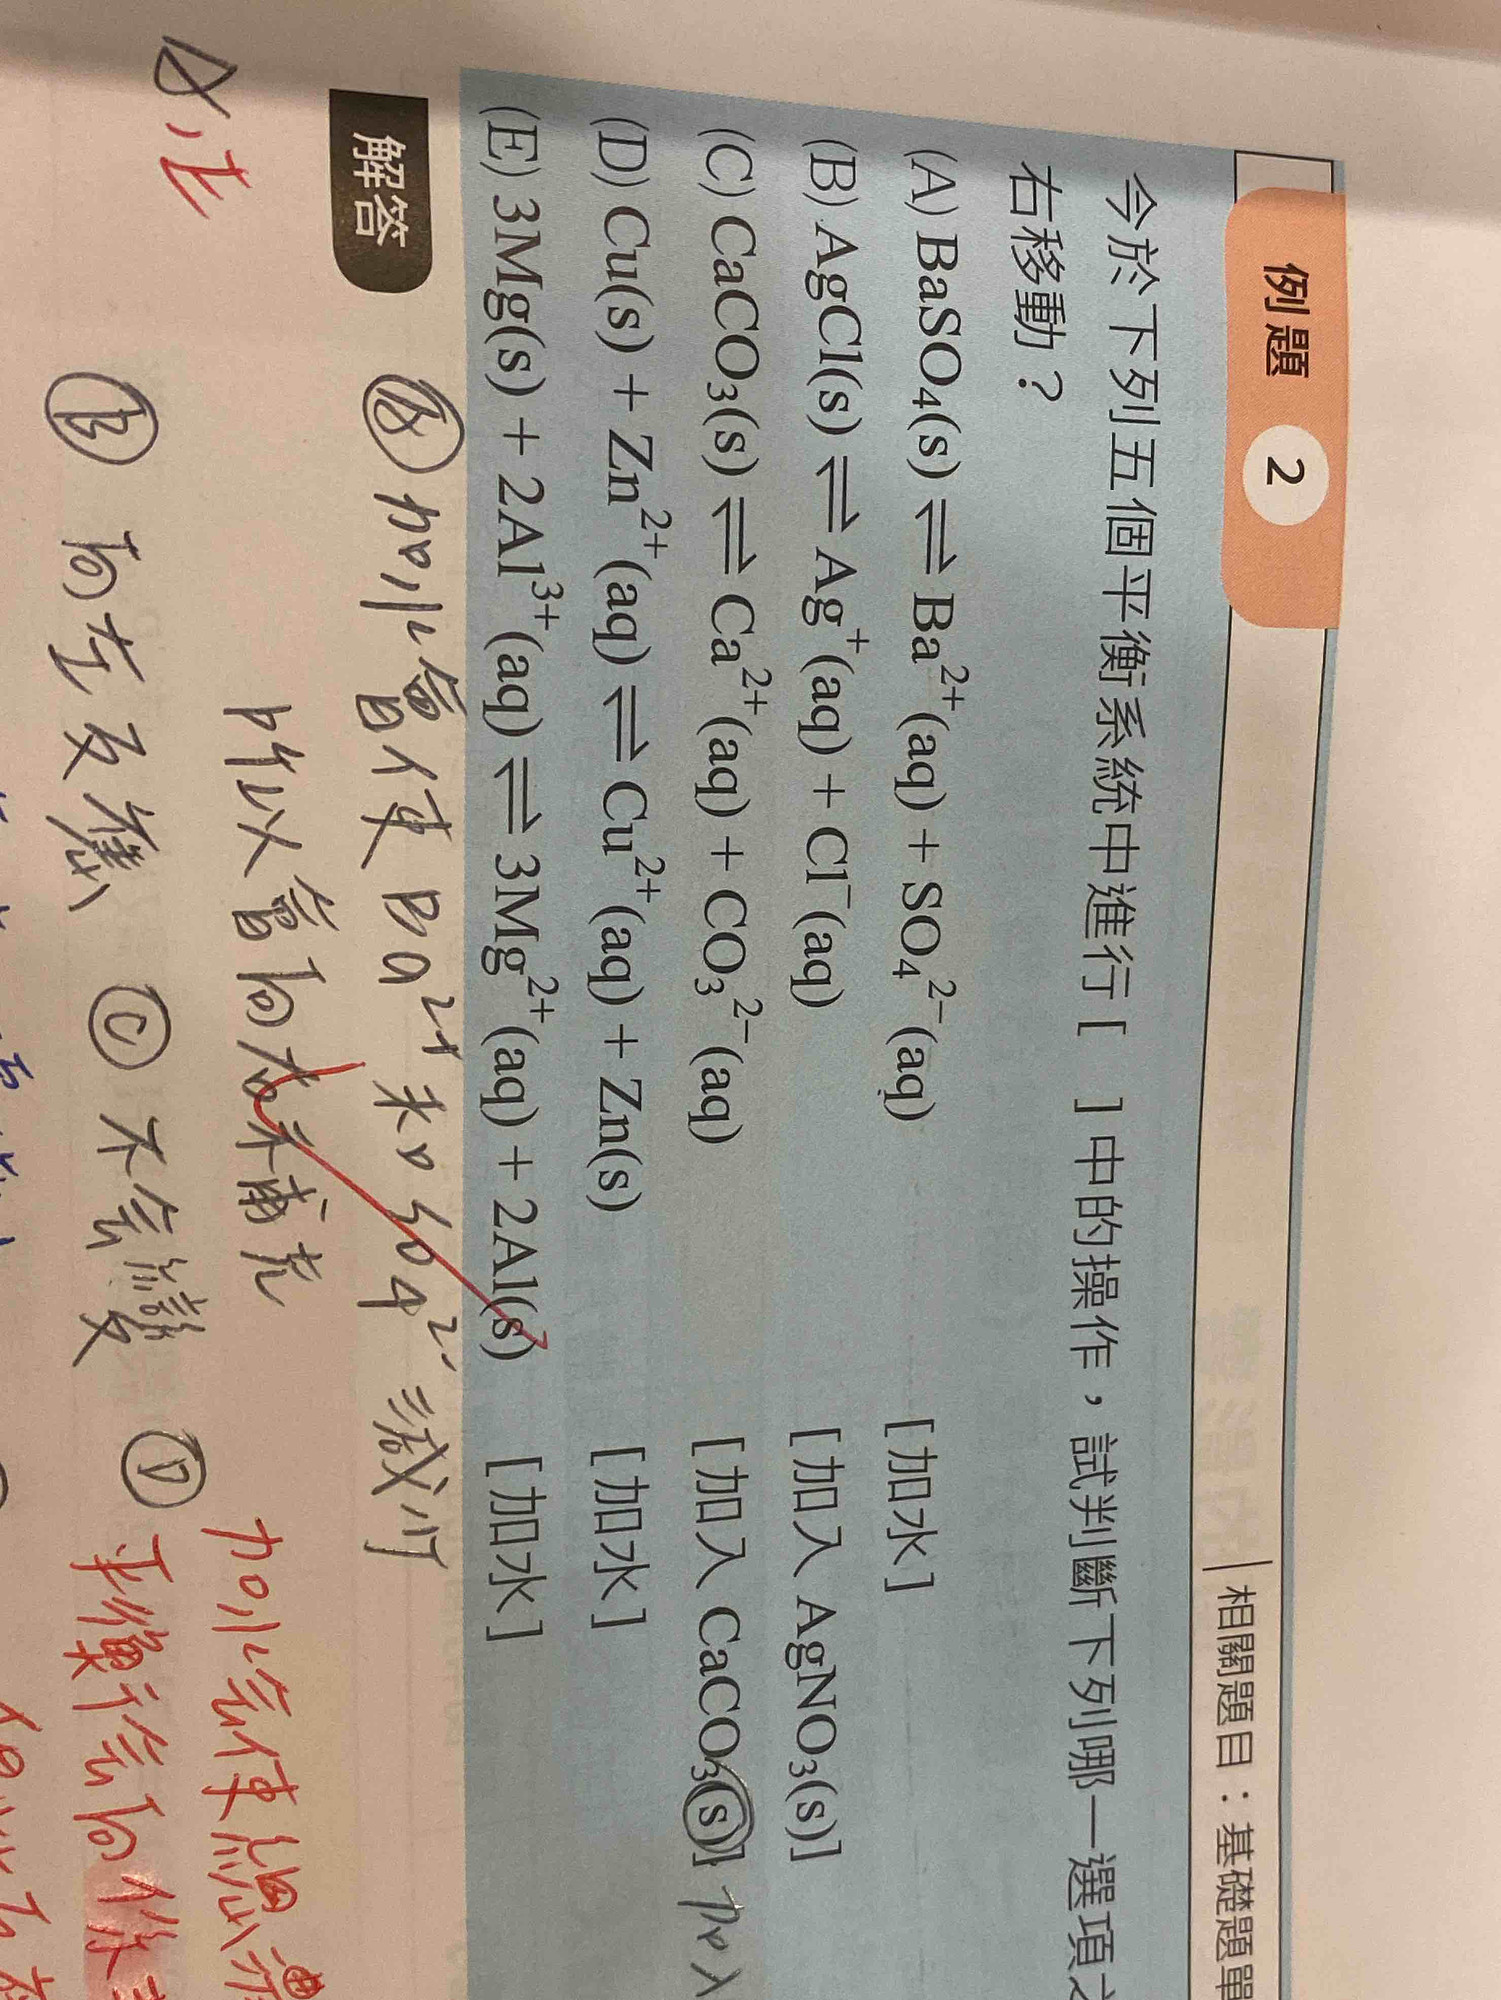 例題 2
相關題目：基礎題單
今於下列五個平衡系統中進行 [ ] 中的操作，試判斷下列哪一選項之
右移動？
(A) BaSO₄(s) ⇌ Ba²⁺(aq) + SO₄²⁻(aq) [加水]
(B) AgCl(s) ⇌ Ag⁺(aq) + Cl⁻(aq) [加入 AgNO₃(s)]
(C) CaCO₃(s) ⇌ Ca²⁺(aq) + CO₃²⁻(aq) [加入 CaCO₃(s)] 加入
(D) Cu(s) + Zn²⁺(aq) ⇌ Cu²⁺(aq) + Zn(s) [加水]
(E) 3Mg(s) + 2Al³⁺(aq) ⇌ 3Mg²⁺(aq) + 2Al(s) [加水]
解答
A 加水會使 Ba²⁺ 和 SO₄²⁻ 減少
所以會向右補充
A, E
B 向左反應 C 不會變 D
加水會使總
平衡會向